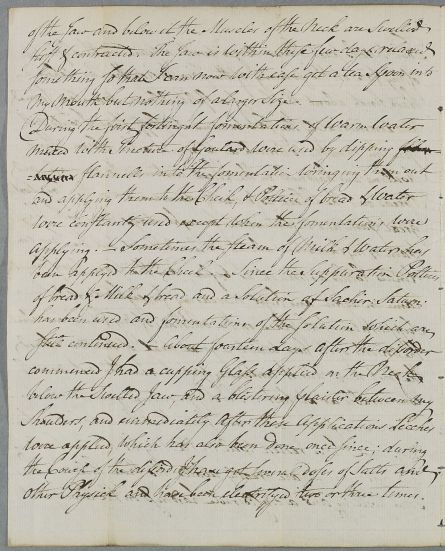 of the Jaw and below it the Muscles of the Neck are swelled
& contracted. The Jaw is within these few days
something so that I can now with ease get a tea Spoon into
my Mouth but nothing of a larger size.
During the first fortnight fomentations of Warm Water
mixed with of Goulard were used by dipping
flannels into the fomentation wringing them out
and applying them to the Cheek, & Poltice of bread & Water
were constantly used except when the fomentations were
applying. — Sometimes the steam of Milk & Water has
been applyed to the Cheek — Since the suppuration Poltices
of bread & Milk & bread and a solution of Sachar: Saturn:
has been used and fomentations of the Solution which are
still continued. — About fourteen days after the disorder
commenced I had a cupping Glass applied on the Neck
below the swelled Jaw, and a blistring plaister between my
Shoulders, and immediately after these Applications Leeches
were applied, which has also been done once since; during
the Course of the disord: I have got some doses of Salts and
other Physick and have been electrifyed two or three times.